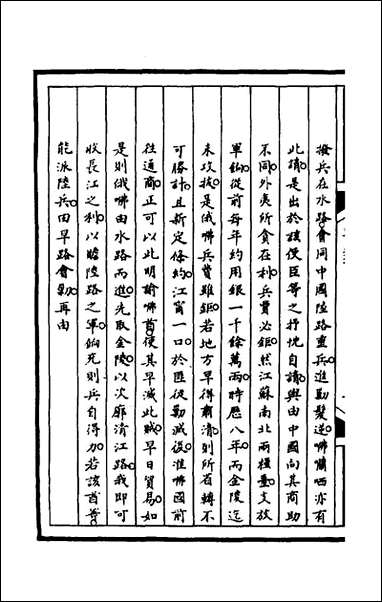 撥兵在水路會同中國陸路重兵進勦髮逆啡嘣哂亦有
此請是出於該使臣等之抒忱自請與由中國向其商助
不同外夷所貪在利兵費必鉅然江蘇南北兩糧臺支放
軍餉從前每年約用銀一千餘萬兩時歷八年而金陵迄
未攻拔是俄啡兵費雖鉅若地方早得肅清則所省轉不
可勝計且新定條約江甯一口於匪徒勦滅後准啡國前
往通商正可以此明諭啡酋使其早滅此賊早日貿易如
是則俄啡由水路而進先取金陵以次廓清江路我即可
收長江之利以贍陸路之軍餉充則兵自得力若該酋等
能派陸兵由旱路會勦再由